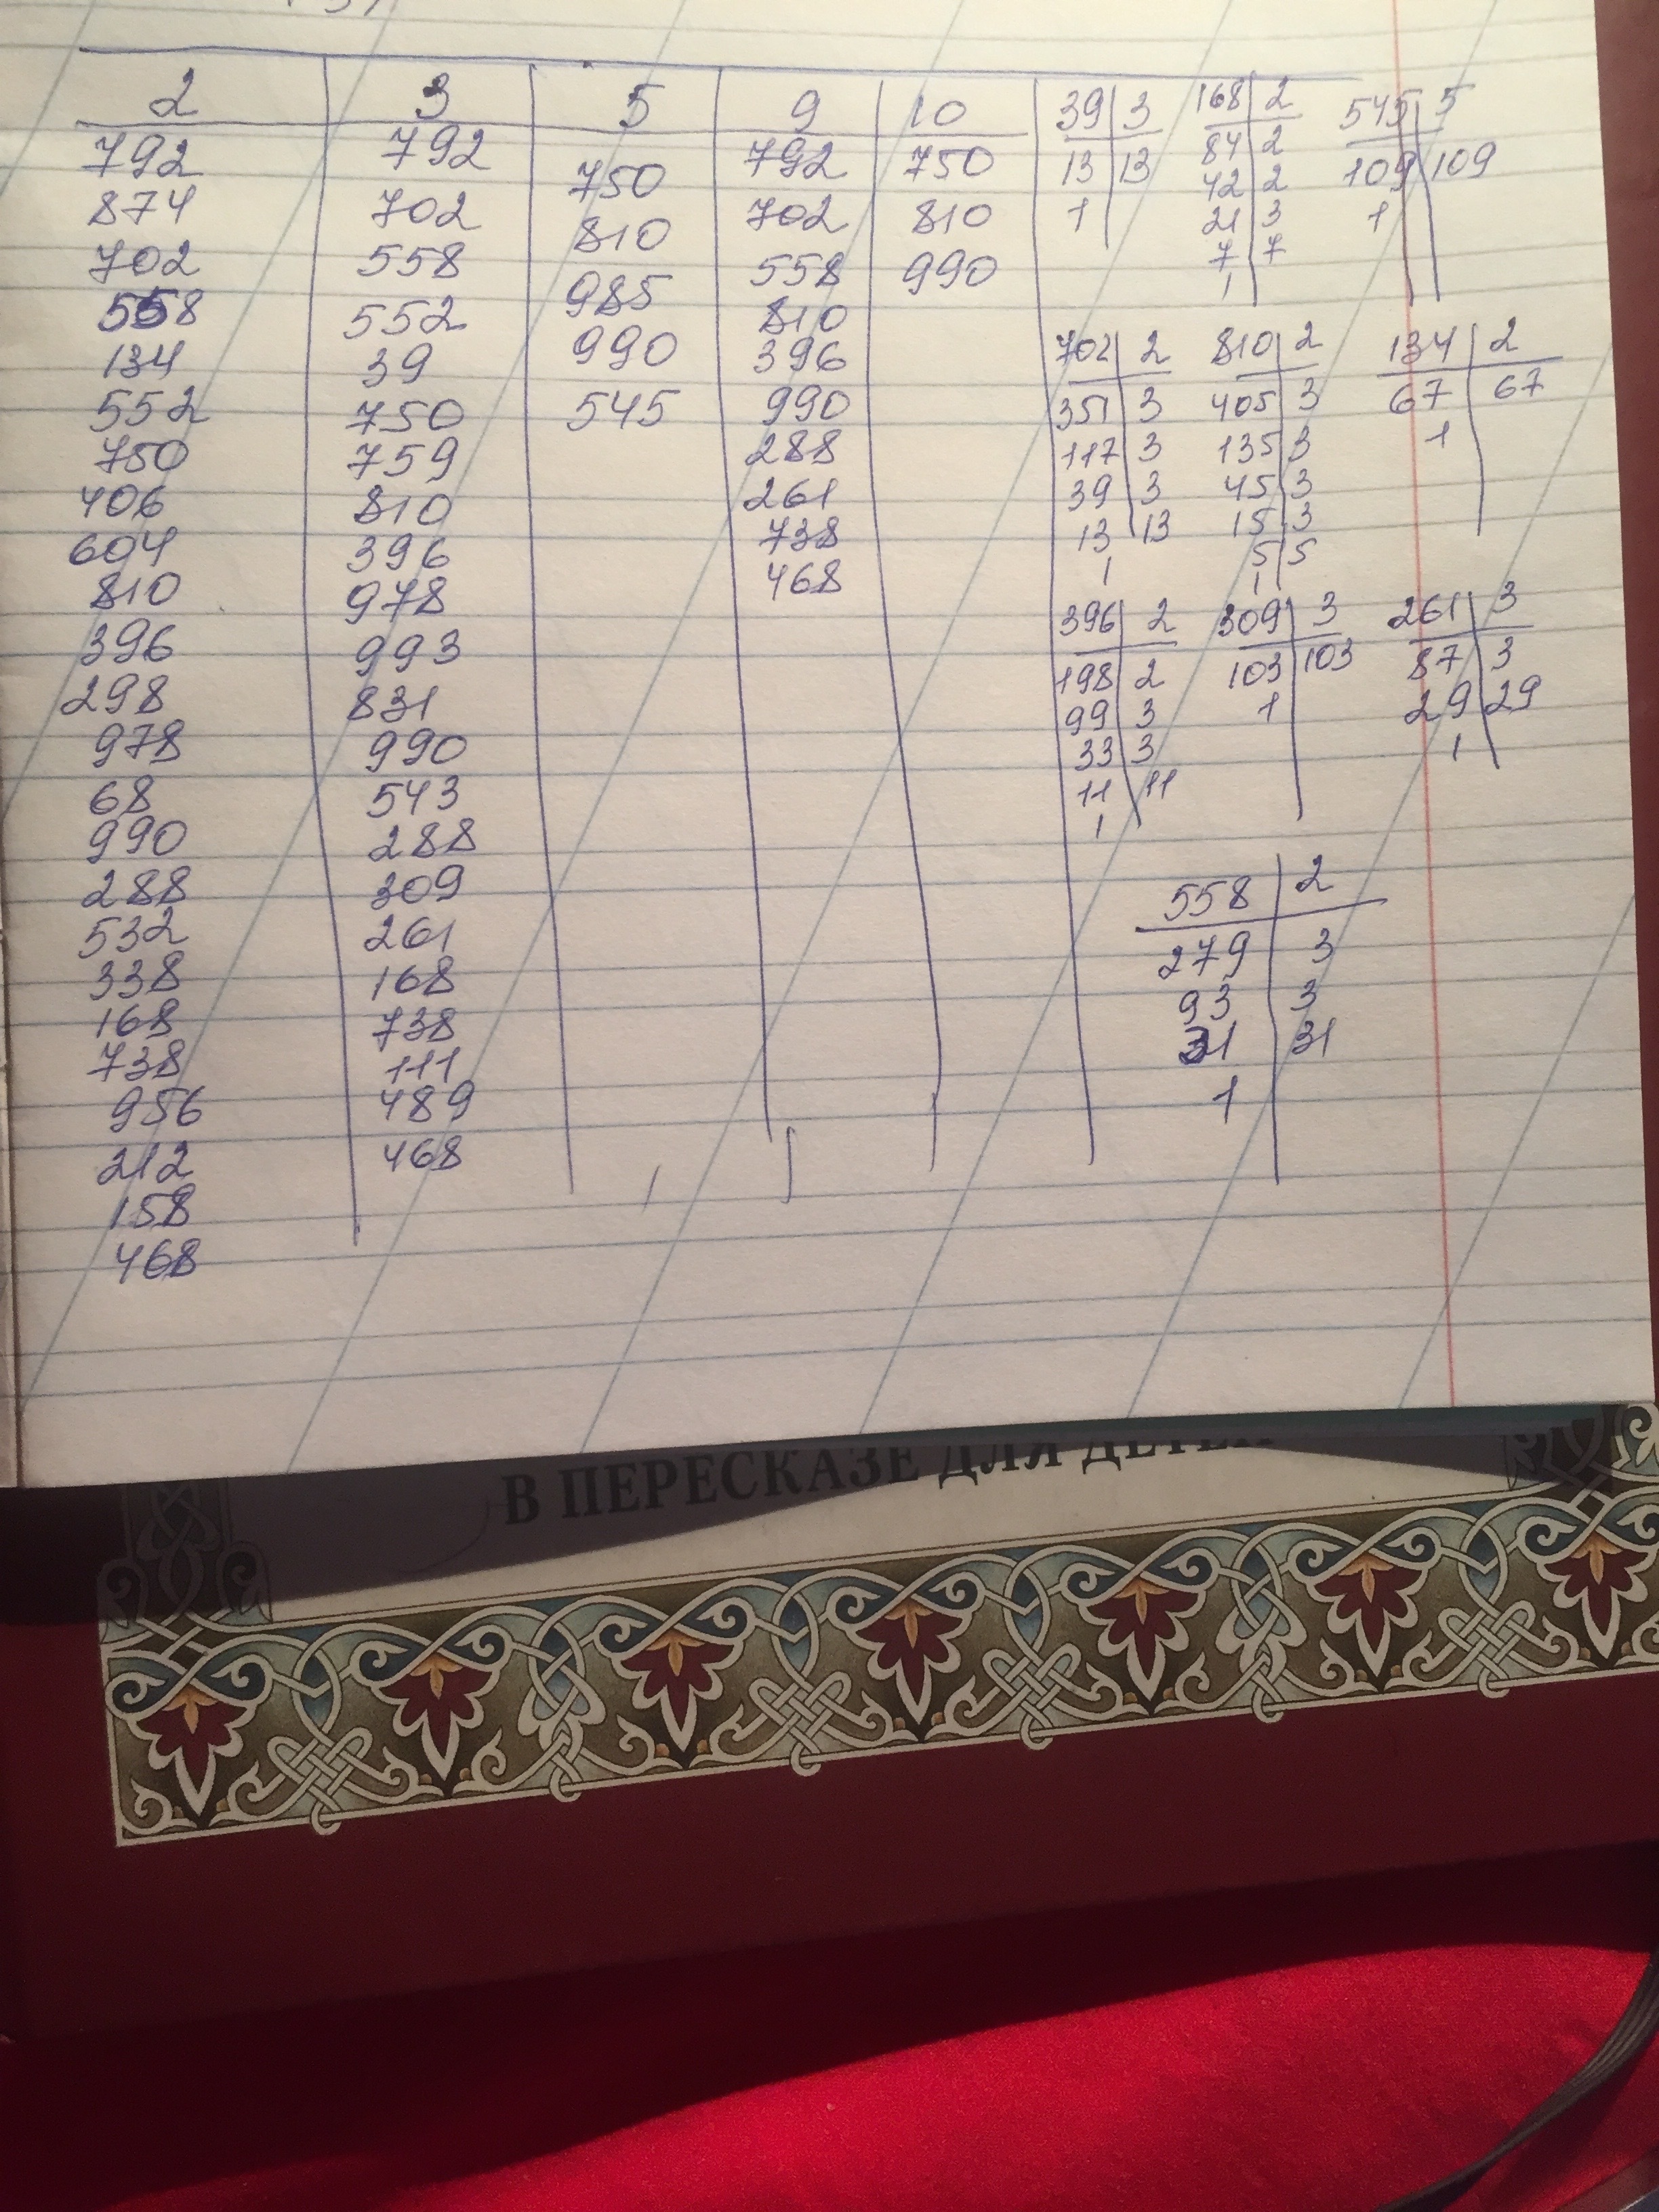 2 3 5 9 10
792 792 750 792 750
874 702 810 702 810
702 558 985 558 990
558 552 990 810
134 39 545 396
552 750 990
750 759 288
406 810 261
604 396 738
810 978 468
396 993
298 831
978 990
68 543
990 288
288 309
532 261
338 168
168 738
738 111
956 489
212 468
158
468
39 3
13 13
1
168 2
84 2
42 2
21 3
7 7
1
545 5
109 109
1
702 2
351 3
117 3
39 3
13 13
1
810 2
405 3
135 3
45 3
15 3
5 5
1
134 2
67 67
1
396 2
198 2
99 3
33 3
11 11
1
309 3
103 103
1
261 3
87 3
29 29
1
558 2
279 3
93 3
31 31
1
В ПЕРЕСКАЗЕ ДЛЯ ДЕТЕЙ